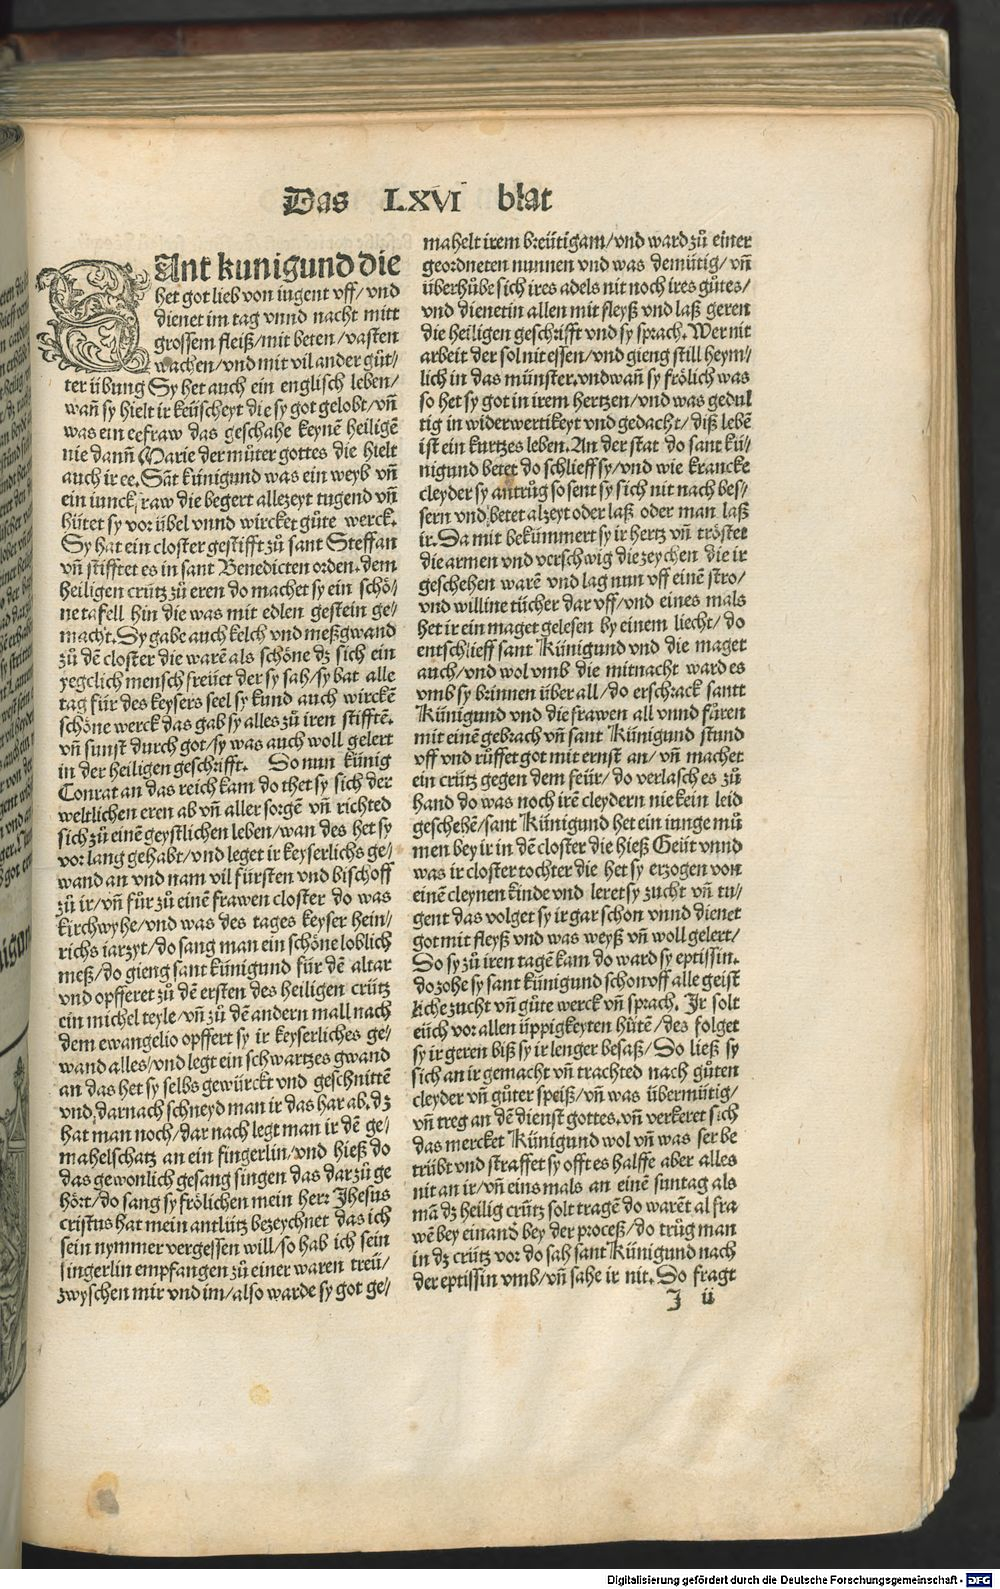 Das LXVI blat
SAnt kunigund die
het got lieb von iugent vff/ vnd
dienet im tag vnnd nacht mitt
grossem fleiß/ mit beten/ vasten
wachen/ vnd mit vil ander gůt/
ter übung Sy het auch ein englisch leben/
wañ sy hielt ir keüscheyt die sy got gelobt/ vñ
was ein eefraw das geschahe keynẽ heiligẽ
nie dann̄ Marie der můter gottes die hielt
auch ir ee. Sãt künigund was ein weyb vñ
ein iunckfraw die begert allezeyt tugend vñ
hütet sy vor übel vnnd wircket gůte werck.
Sy hat ein closter gestifft zů sant Steffan
vñ stifftet es in sant Benedicten orden. dem
heiligen crütz zů eren do machet sy ein schö/
ne tafell hin die was mit edlen gestein ge/
macht. Sy gabe auch kelch vnd meßgwand
zů dẽ closter die warẽ als schöne dz sich ein
yegclich mensch freüet der sy sah/ sy bat alle
tag für des keysers seel sy kund auch wirckẽ
schöne werck das gab sy alles zů iren stifftẽ.
vñ sunst durch got/ sy was auch woll gelert
in der heiligen geschrifft. So nun künig
Conrat an das reich kam do thet sy sich der
weltlichen eren ab vñ aller sorgẽ vñ richted
sich zů einẽ geystlichen leben/ wan des het sy
vor lang gehabt/ vnd leget ir keyserlichs ge/
wand an vnd nam vil fürsten vnd bischoff
zů ir/ vñ für zů einẽ frawen closter do was
kirchwyhe/ vnd was des tages keyser hein/
richs iarzyt/ do sang man ein schöne loblich
meß/ do gieng sant künigund für dẽ altar
vnd opfferet zů dẽ ersten des heiligen crütz
ein michel teyle/ vñ zů dẽ andern mall nach
dem ewangelio opffert sy ir keyserliches ge/
wand alles/ vnd legt ein schwartzes gwand
an das het sy selbs gewürckt vnd geschnittẽ
vnd darnach schneyd man ir das har ab. dz
hat man noch/ dar nach legt man ir dẽ ge/
mahelschatz an ein fingerlin/ vnd hieß do
das gewonlich gesang singen das dar zů ge
hört/ do sang sy frölichen mein herr Jhesus
cristus hat mein antlütz bezeychnet das ich
sein nymmer vergessen will/ so hab ich sein
fingerlin empfangen zů einer waren treü/
zwyschen mir vnd im/ also warde sy got ge/
mahelt irem breütigam/ vnd ward zů einer
geordneten nunnen vnd was demütig/ vñ
überhübe sich ires adels nit noch ires gůtes/
vnd dienet in allen mit fleyß vnd laß geren
die heiligen geschrifft vnd sy sprach. Wer nit
arbeit der sol nit essen/ vnd gieng still heym/
lich in das münster. vnd wañ sy frölich was
so het sy got in irem hertzen/ vnd was gedul
tig in widerwertikeyt vnd gedacht/ diß lebẽ
ist ein kurtzes leben. An der stat do sant kü/
nigund betet do schlieff sy/ vnd wie krancke
cleyder sy antrůg so sent sy sich nit nach bes/
sern vnd betet alzeyt oder laß oder man laß
ir. Da mit bekümmert sy ir hertz vñ tröstet
die armen vnd verschwig die zeychen die ir
geschehen warẽ vnd lag nun vff einẽ stro/
vnd willine tücher dar vff/ vnd eines mals
het ir ein maget gelesen by einem liecht/ do
entschlieff sant Künigund vnd die maget
auch/ vnd wol vmb die mitnacht ward es
vmb sy brinnen über all/ do erschrack santt
Künigund vnd die frawen all vnnd fůren
mit einẽ gebrach vñ sant Künigund stund
vff vnd růffet got mit ernst an/ vñ machet
ein crütz gegen dem feür/ do verlasch es zů
hand do was noch irẽ cleydern nie kein leid
geschehẽ/ sant Künigund het ein iunge mů
men bey ir in dẽ closter die hieß Geüt vnnd
was ir closter tochter die het sy erzogen von
einẽ cleynen kinde vnd leret sy zucht vñ tu/
gent das volget sy ir gar schon vnnd dienet
got mit fleyß vnd was weyß vñ woll gelert/
So sy zů iren tagẽ kam do ward sy eptissin.
do zohe sy sant künigund schon vff alle geist
liche zucht vñ gůte werck vñ sprach. Ir solt
eüch vor allen üppigkeyten hütẽ/ des folget
sy ir geren biß sy ir lenger besaß/ So ließ sy
sich an ir gemacht vñ trachted nach gůten
cleyder vñ gůter speiß/ vñ was übermütig/
vñ treg an dẽ dienst gottes. vñ verkeret sich
das mercket Künigund wol vñ was ser be
trübt vnd straffet sy offt es halffe aber alles
nit an ir/ vñ eins mals an einẽ suntag als
mã dz heilig crütz solt tragẽ do warẽt al fra
wẽ bey einand bey der proceß/ do trůg man
in dz crütz vor do sah sant Künigund nach
der eptissin vmb/ vñ sahe ir nit. So fragt
J ii
Digitalisierung gefördert durch die Deutsche Forschungsgemeinschaft - DFG